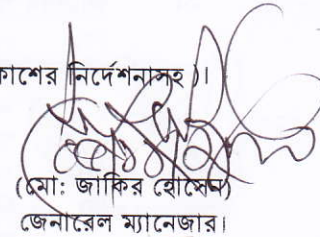 কাশের নির্দেশনাসহ )।
(মো: জাকির হোসেন)
জেনারেল ম্যানেজার।